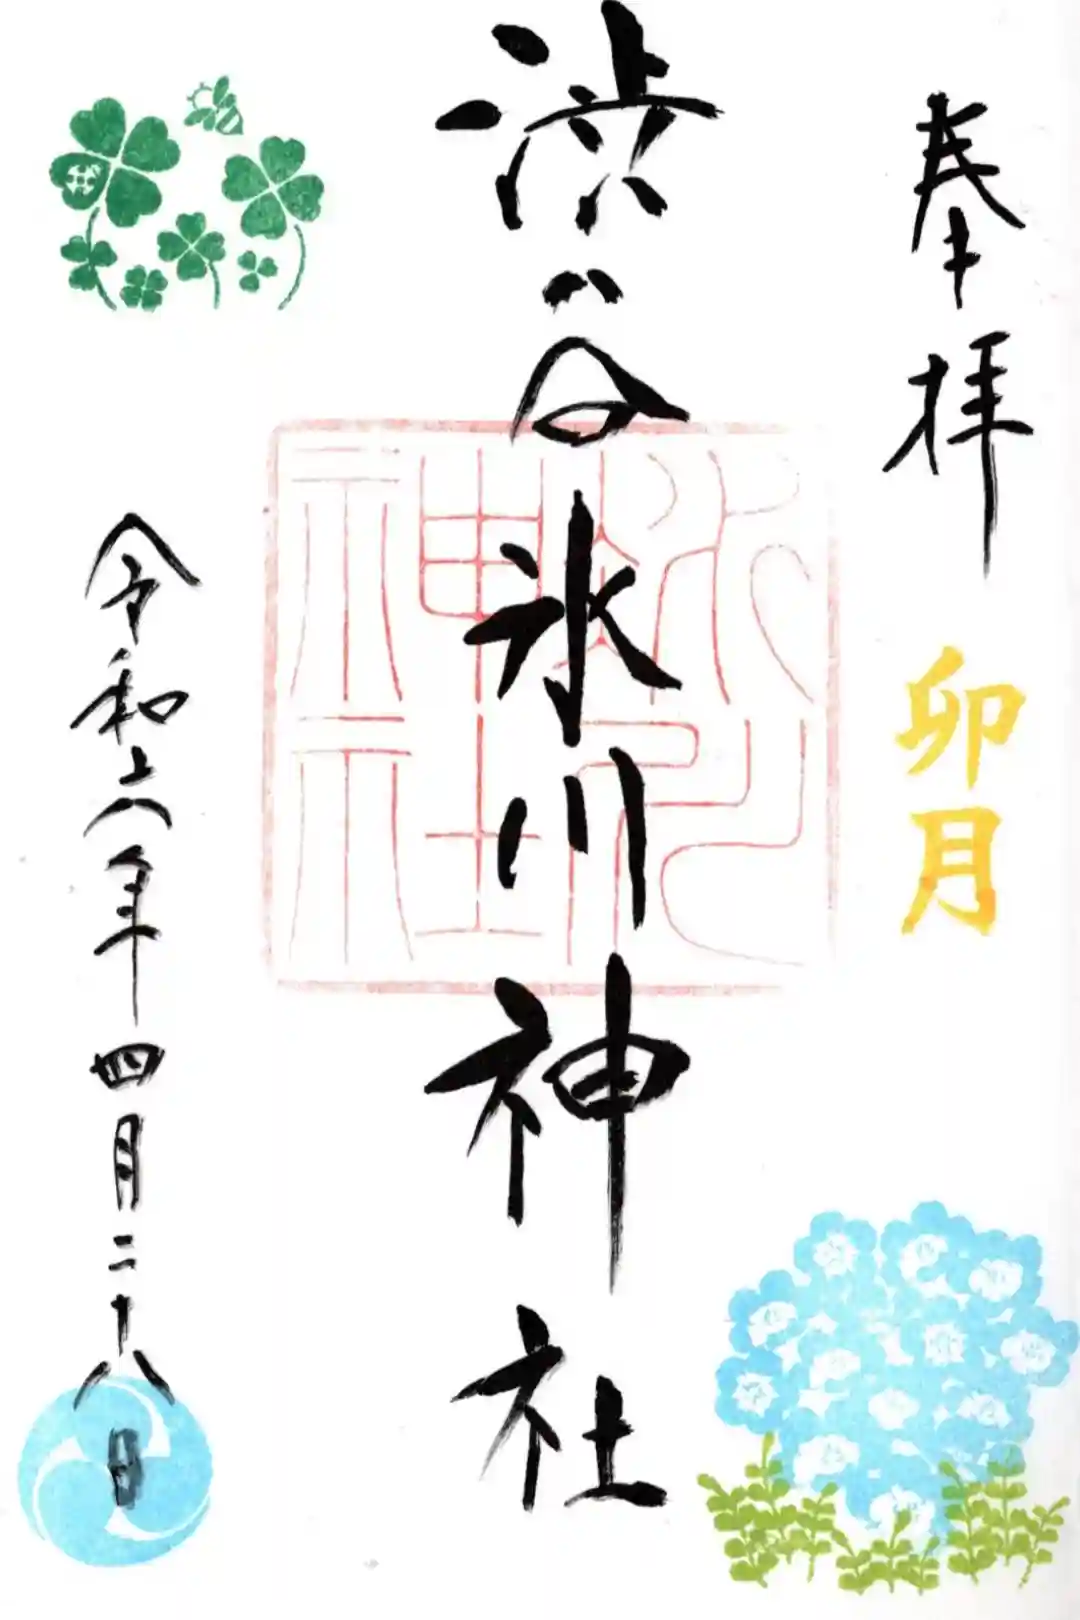 奉拝
卯月
渋谷氷川神社
渋谷氷川神社
令和六年四月二十八日